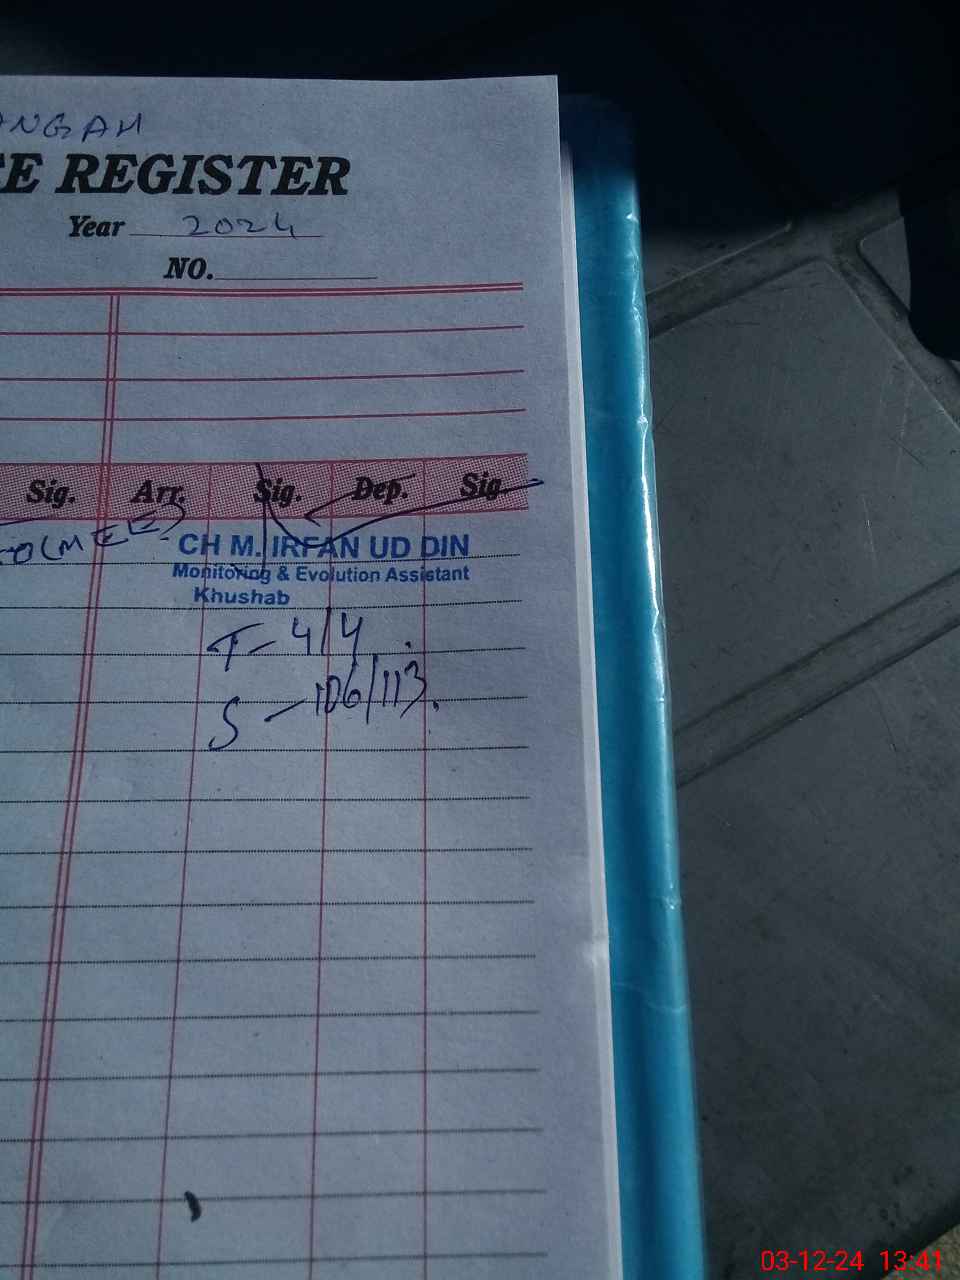 ANGAH
EE REGISTER
Year 2024
NO.
Sig. Arr. Sig. Dep. Sig.
CH M. IRFAN UD DIN
Monitoring & Evolution Assistant
Khushab
T- 4/4
S - 106/113
03-12-24 13:41